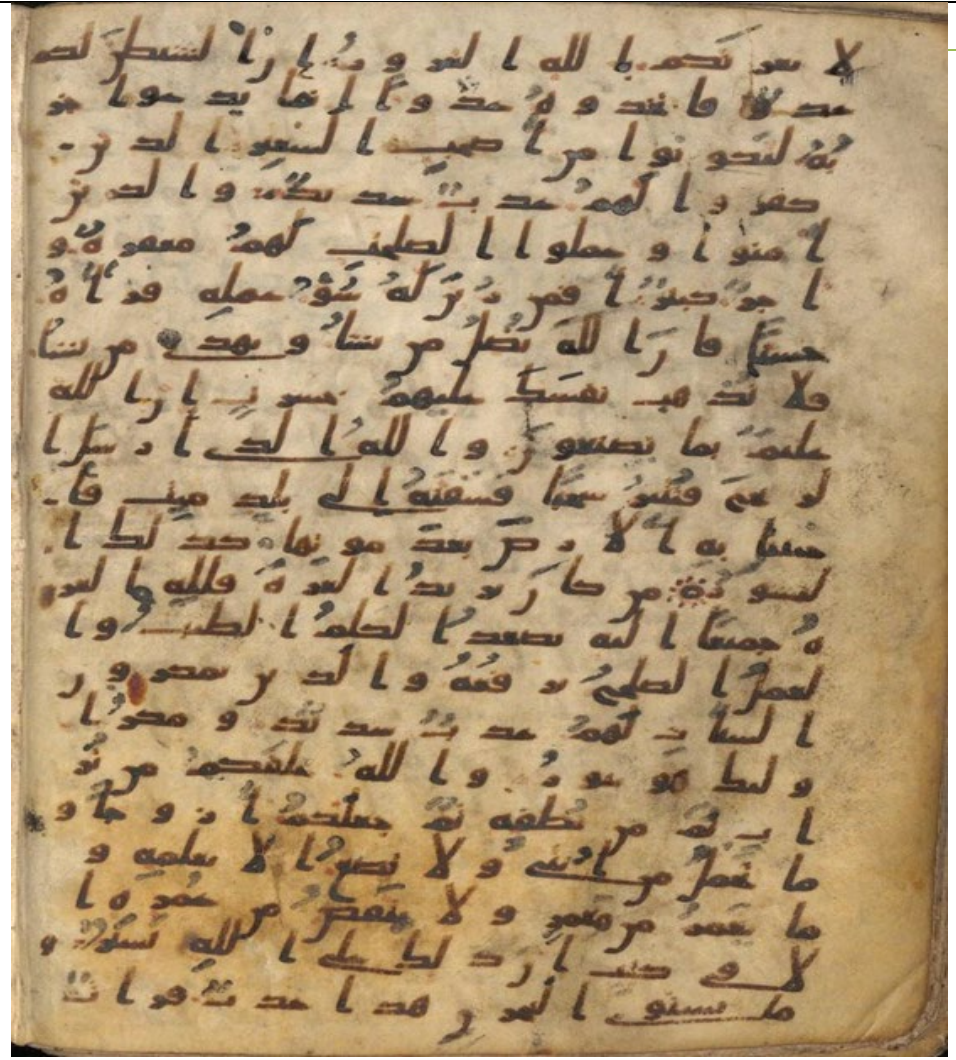 لا يغرنكم بالله الغرور ان الشيطن لكم
عدو فاتخذوه عدوا انما يدعوا حز
به ليكونوا من اصحب السعير الذين
كفروا لهم عذاب شديد والذين
امنوا وعملوا الصلحت لهم مغفرة و
اجر كبير افمن زين له سوء عمله فراه
حسنا فان الله يضل من يشا ويهدي من يشا
فلا تذهب نفسك عليهم حسرت ان الله
عليم بما يصنعون والله الذي ارسل ا
لريح فتثير سحبا فسقنه الى بلد ميت فا
حيينا به الارض بعد موتها كذلك ا
لنشور من كان يريد العزة فلله العز
ة جميعا اليه يصعد الكلم الطيب وا
لعمل الصلح يرفعه والذين يمكرون
السيات لهم عذاب شديد ومكر ا
ولئك هو يبور والله خلقكم من تر
اب ثم من نطفة ثم جعلكم ازوجا و
ما تحمل من انثى ولا تضع الا بعلمه و
ما يعمر من معمر ولا ينقص من عمره ا
لا في كتب ان ذلك على الله يسير و
ما يستوي البحرن هذا عذب فرات